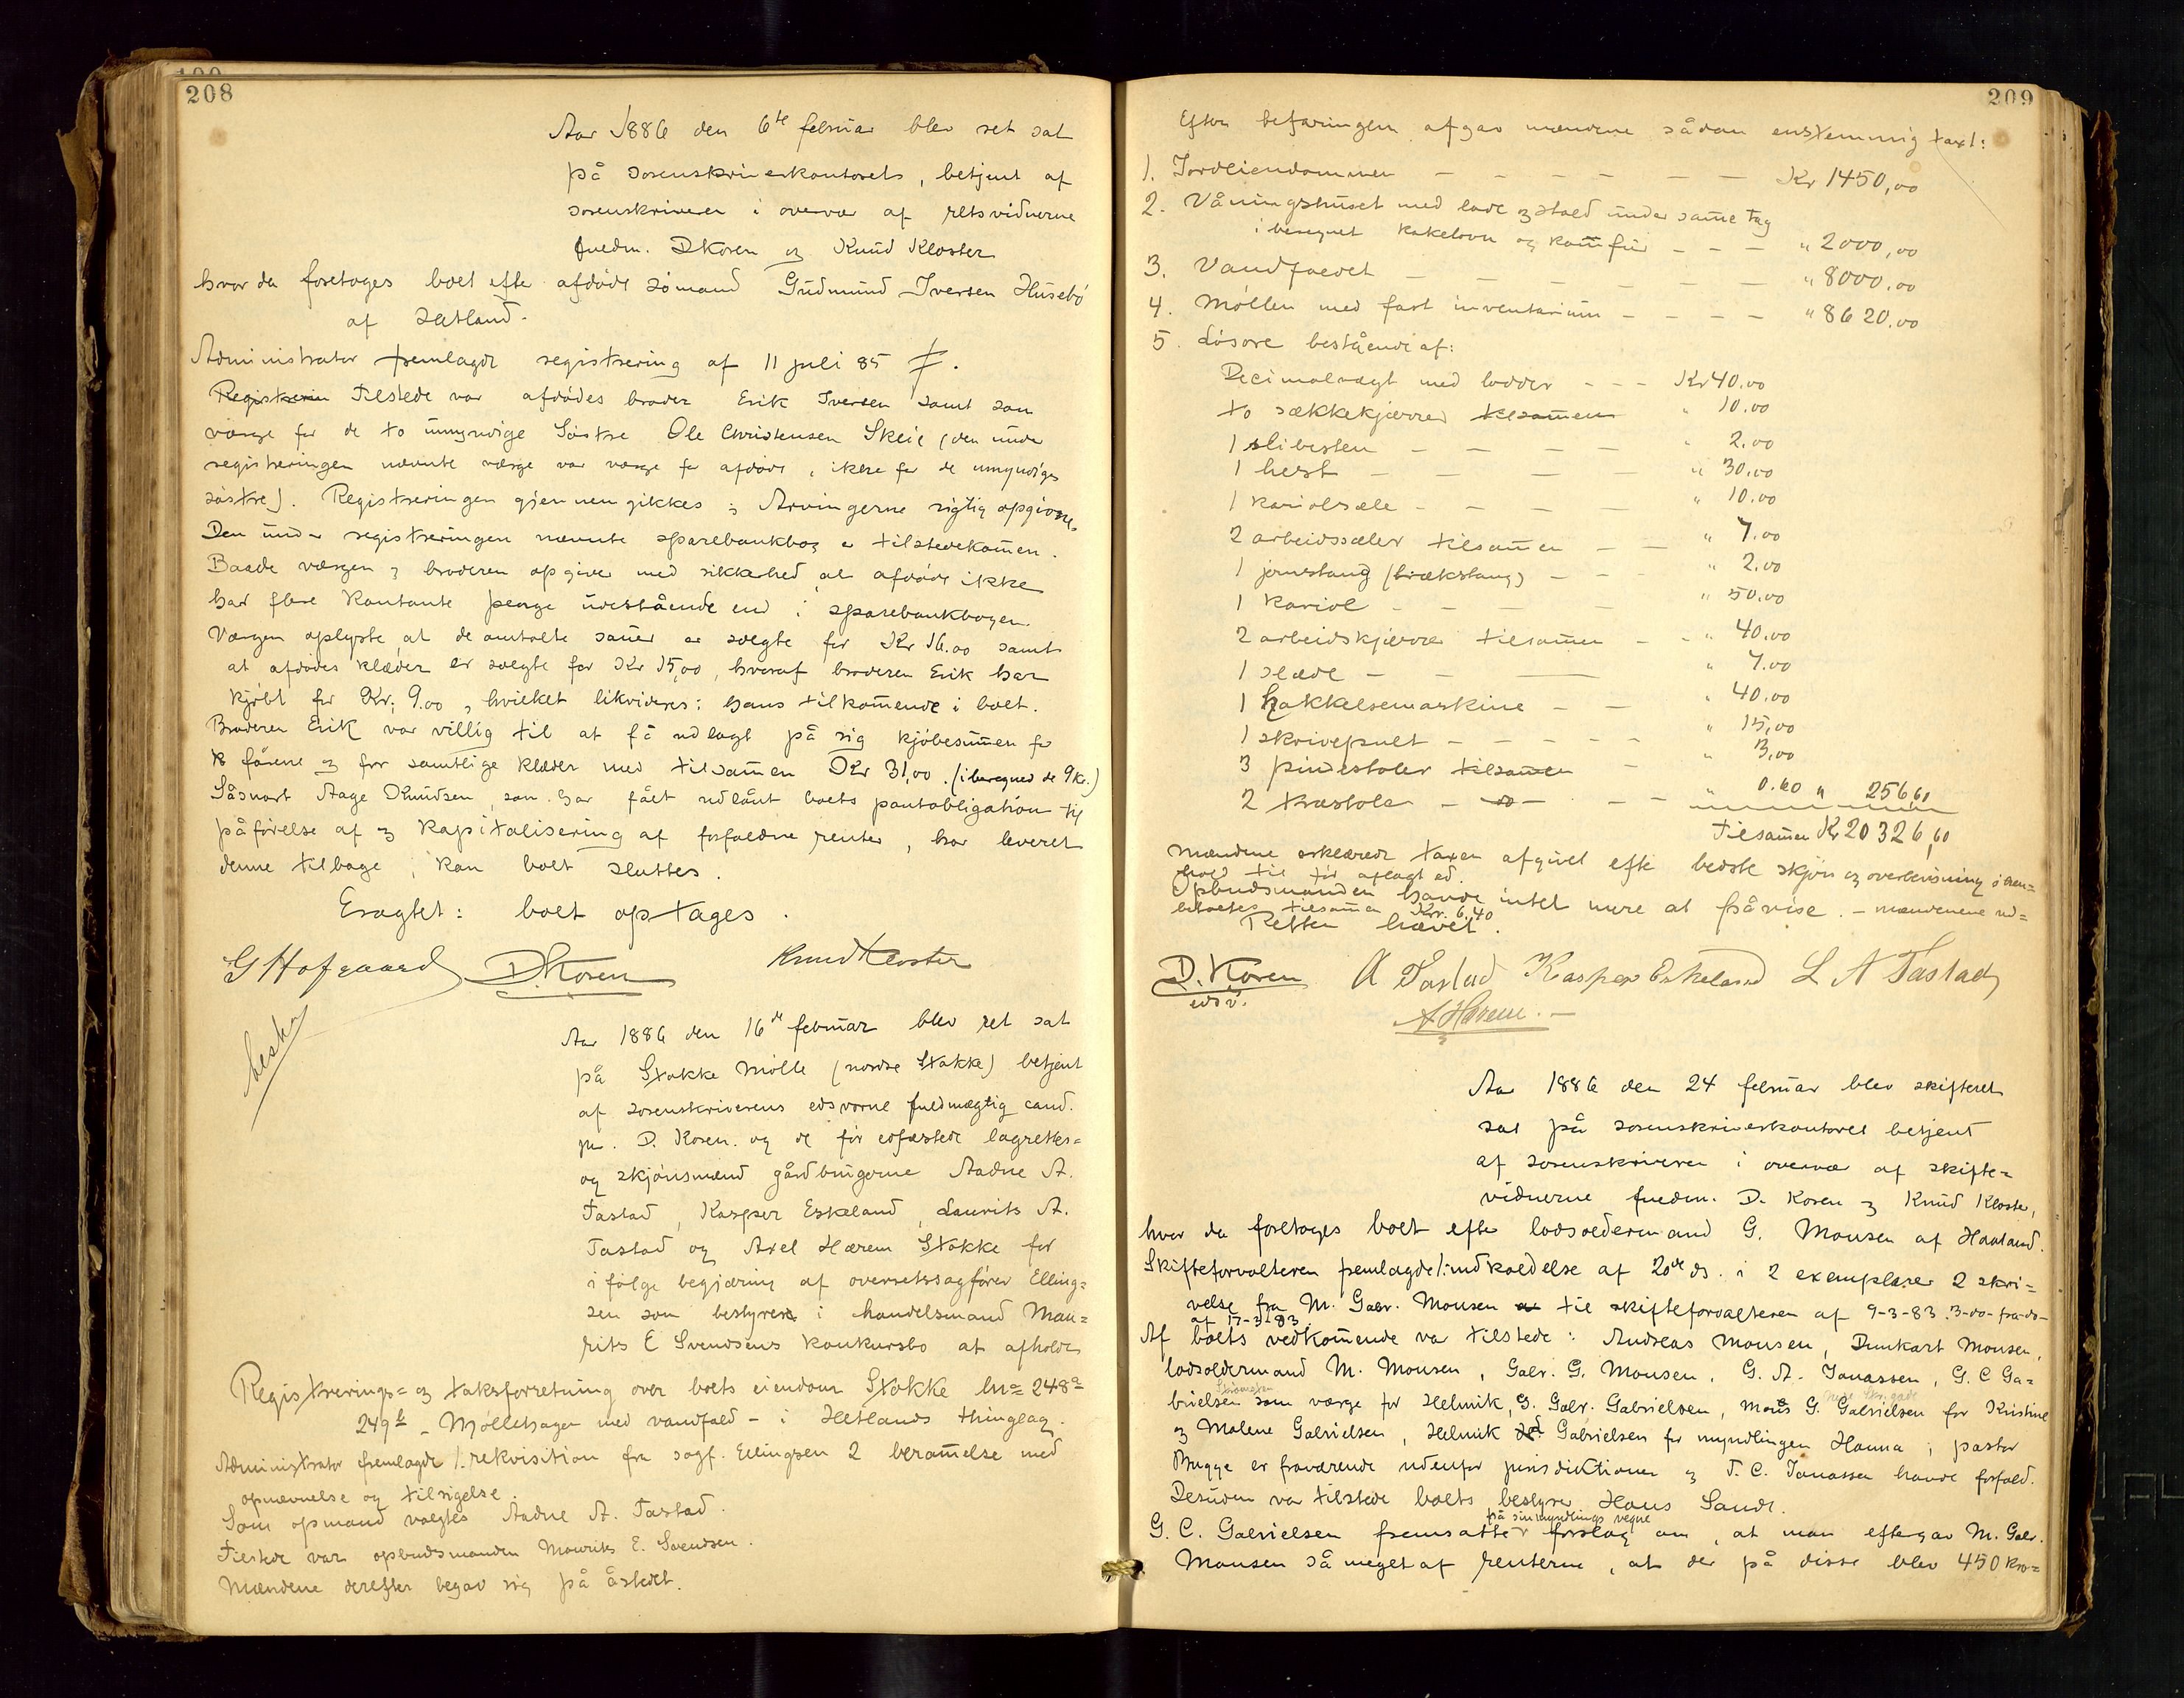 208
Aar 1886 den 6te februar blev ret sat
på sorenskriverkontorets, betjent af
sorenskriveren i overvær af retsvidnerne
fuldm. D Koren og Knud Kloster
hvor da foretoges boet efter afdøde sømand Gudmund Iversen Husebø
af Hetland.
Administrator fremlagde registrering af 11 juli 85 ⨍.
Registrerin Tilstede var afdødes broder Erik Iversen samt som
værge for de to umyndige søstre Ole Christensen Skeie (den under
registreringen nævnte værge var værge for afdøde, ikke for de umyndige
søstre). Registreringen gjennemgikkes; Arvingerne rigtig opgivne.
Den under registreringen nævnte sparebankbog er tilstedekommen.
Baade værgen og broderen opgiver med sikkerhed, at afdøde ikke
har flere kontante penge udestående end i sparebankbogen.
Værgen oplyste at de omtalte sauer er solgte for Kr 16.00 samt
at afdødes klæder er solgte for Kr 15,00, hvoraf broderen Erik har
kjøbt for Kr. 9.00, hvilket likvideres i hans tilkommende i boet.
Broderen Erik var villig til at få udlagt på sig kjøbesummen for
fårene og for samtlige klæder med tilsammen Kr 31,00. (iberegned de 9 kr.)
Såsnart Aage Knudsen, som har fået udlånt boets pantobligation til
påførelse af og kapitalisering af forfaldne renter, har leveret
denne tilbage, kan boet sluttes.
Eragtet: boet optages.
G Hofgaard D Koren Knud Kloster
besk.
Aar 1886 den 16de februar blev ret sat
på Stokke Mølle (nordre Stokke) betjent
af sorenskriverens edsvorne fuldmægtig cand.
jur. D. Koren og de før edfæstede lagrettes=
og skjønsmænd gårdbrugerne Aadne A.
Tastad, Kasper Eskeland, Laurits A.
Tastad og Axel Hærem Stokke for
i følge begjæring af overretssagfører Elling=
sen som bestyrer i handelsmand Mau=
rits E Svendsens konkursbo at afholde
Registrerings= og taksforretning over boets eiendom Stokke lnr 248a
249b - Møllehagen med vandfald - i Hetlands thinglag.
Administrator fremlagde 1. rekvisition fra sagf. Ellingsen 2 berammelse med
opnævnelse og tilsigelse.
Som opmand valgtes Aadne A. Tastad.
Tilstede var opbudsmanden Mourits E. Svendsen.
Mændene derefter begav sig på åstedet.
209
Efter befaringen afgav mændene sådan enstemmig taxt:
1. Jordeiendommen - - - - - - Kr 1450,00
2. Våningshuset med lade og stald under samme tag
iberegnet kakelovn og komfür - - - " 2000,00
3. Vandfaldet - - - - - - " 8000,00
4. Møllen med fast inventarium - - - - " 8620,00
5. Løsøre bestående af:
Decimalvægt med lodder - - - Kr 40.00
to sækkekjærrer tilsammen " 10.00
1 slibesten - - - - " 2.00
1 hest - - - " 30.00
1 kariolsæle - - - - " 10.00
2 arbeidssæler tilsammen - - " 7.00
1 jernstang (brækstang) - - - " 2.00
1 kariol - - - - " 50.00
2 arbeidskjærrer tilsammen - - " 40.00
1 slæde - - - " 7.00
1 hakkelsemaskine - - " 40.00
1 skrivepult - - - - - " 15,00
3 pindestoler tilsammen - " 3,00
2 træstoler - do - - - " 0.60 " 256,60
Tilsammen Kr 20326,60
Mændene erklærede taxen afgivet efter bedste skjøn og overbevisning i hen=
hold til før aflagt ed.
Opbudsmanden havde intet mere at påvise. - Mændenene ud=
betaltes tilsammen Kr. 6,40
Retten hævet.
D. Koren A Tastad Kasper Eskeland L A Tastad
edsv.
A Hærem.
Aar 1886 den 24 februar blev skifteret
sat på sorenskriverkontoret betjent
af sorenskriveren i overvær af skifte=
vidnerne fuldm. D. Koren og Knud Kloster,
hvor da foretoges boet efter lodsoldermand G. Monsen af Haaland.
Skifteforvalteren fremlagde 1. indkaldelse af 20de ds. i 2 exemplarer 2 skri=
velse fra M. Gabr. Monsen til skifteforvalteren af 9-3-83. 3 - do - fra - do -
af 17-3-83
Af boets vedkommende var tilstede: Andreas Monsen, Dunkart Monsen,
lodsoldermand M. Monsen, Gabr. G. Monsen, G. A. Jonassen, G. C Ga=
brielsen som værge for Helmik, G. Gabr. Gabrielsen, Mons G. Gabrielsen for Kristine
og Malene Gabrielsen, Helmik Gabrielsen for myndlingen Hanna; pastor
Brugge er fraværende udenfor jurisdiktionen og T. C. Jonassen havde forfald.
Desuden var tilstede boets bestyrer Hans Sande.
på sin myndlings vegne
G. C. Gabrielsen fremsatte forslag om, at man eftergav M. Gabr.
Monsen så meget af renterne, at der på disse blev 450 kro=